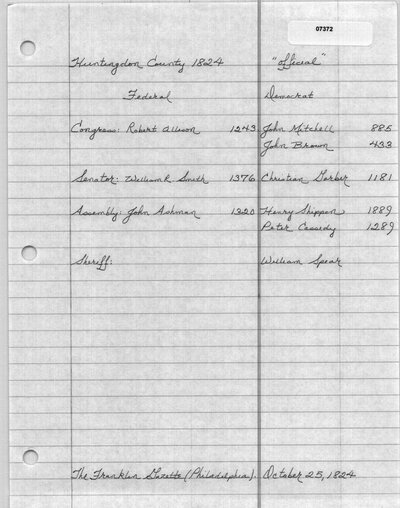 07372
Huntingdon County 1824 "official"
Federal Democrat
Congress: Robert Allison 1243 John Mitchell 885
John Brown 433
Senator: William R. Smith 1376 Christian Garber 1181
Assembly: John Ashman 1320 Henry Shippen 1889
Peter Cassedy 1289
Sheriff: William Spear
The Franklin Gazette (Philadelphia). October 25, 1824